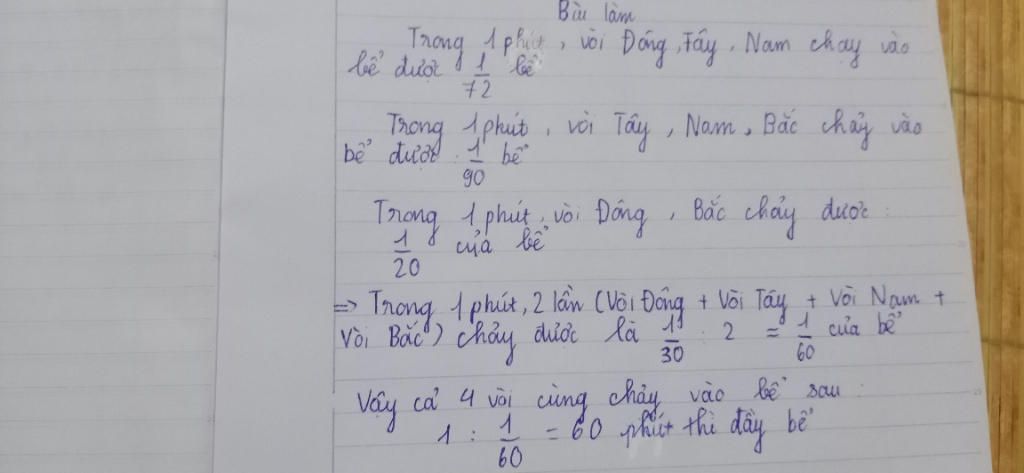 Bài làm
Trong 1 phút, vòi Đông, Tây, Nam chảy vào
bể được 1/72 bể
Trong 1 phút, vòi Tây, Nam, Bắc chảy vào
bể được : 1/90 bể
Trong 1 phút, vòi Đông, Bắc chảy được :
1/20 của bể
=> Trong 1 phút, 2 lần (Vòi Đông + Vòi Tây + Vòi Nam +
Vòi Bắc) chảy được là 1/30 : 2 = 1/60 của bể
Vậy cả 4 vòi cùng chảy vào bể sau :
1 : 1/60 = 60 phút thì đầy bể